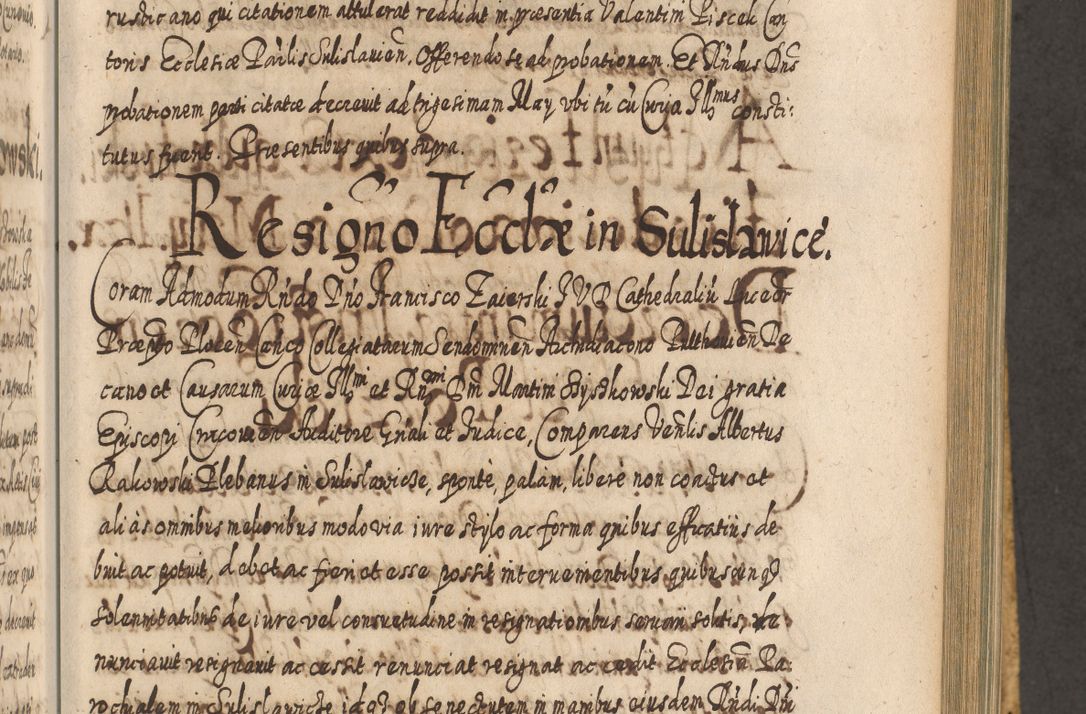 rusticano qui citationem attulerat reddidit in præsentia Valentim Piscek Can
toris Ecclesiæ Parlis Sulislauien. Offerendo se ad probationem. Et Rñdus Dñs
probationem parti citatæ decreuit ad trigesimam May vbi tũ cũ Curja Illmus consti:
tutus fuerit. Præsentibus quibus supra.
Resigno Ecclæ in Sulislawice.
Coram Admodum Rñdo Dño Francisco Zaierski JVD Cathedraliũ Luceor
Præpto Plocen Canco Collegiatarum Sendomiren Archidiacono Pulthouien De
cano et Causarum Curiæ Illmi et Rñmi Dñi Martini Szyszkowski Dei gratia
Episcopi Cracouien Auditore Gñali et Judice, Comparens Venlis Albertus
Rakowski Plebanus in Sulislawicze, sponte, palam, libere non coactus et
aliàs omnibus melioribus modo via iure stylo ac forma quibus efficatius de
buit ac potuit, debet ac fieri et esse possit interuenientibus quibuscunq3
solennitatibus de iure vel consuetudine in resignationibus seruari solitis de
nunciauit resignauit ac cessit renunciat resignat ac cedit Ecclesiã Pa:
rochialem in Sulislawicze idq3 ob senectutem in manibus eiusdem Rñdi Dñi